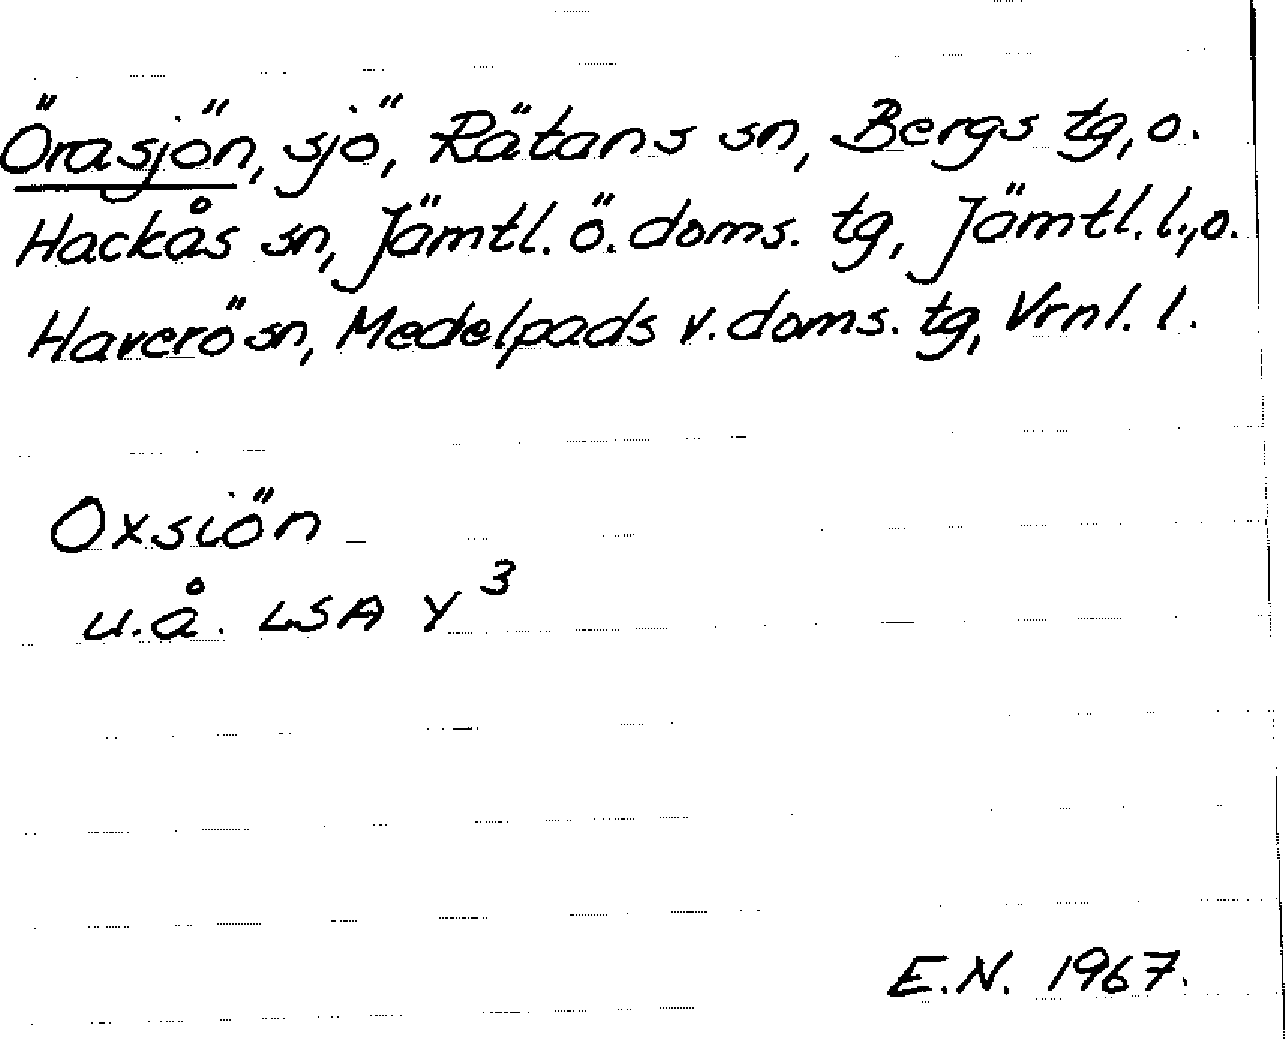 Örasjön, sjö, Rätans sn, Bergs tg, o.
Hackås sn, Jämtl. ö. doms. tg, Jämtl. l., o.
Haverö sn, Medelpads v. doms. tg, Vrnl. l.
Oxsiön
u.å. LSA Y 3
E.N. 1967.